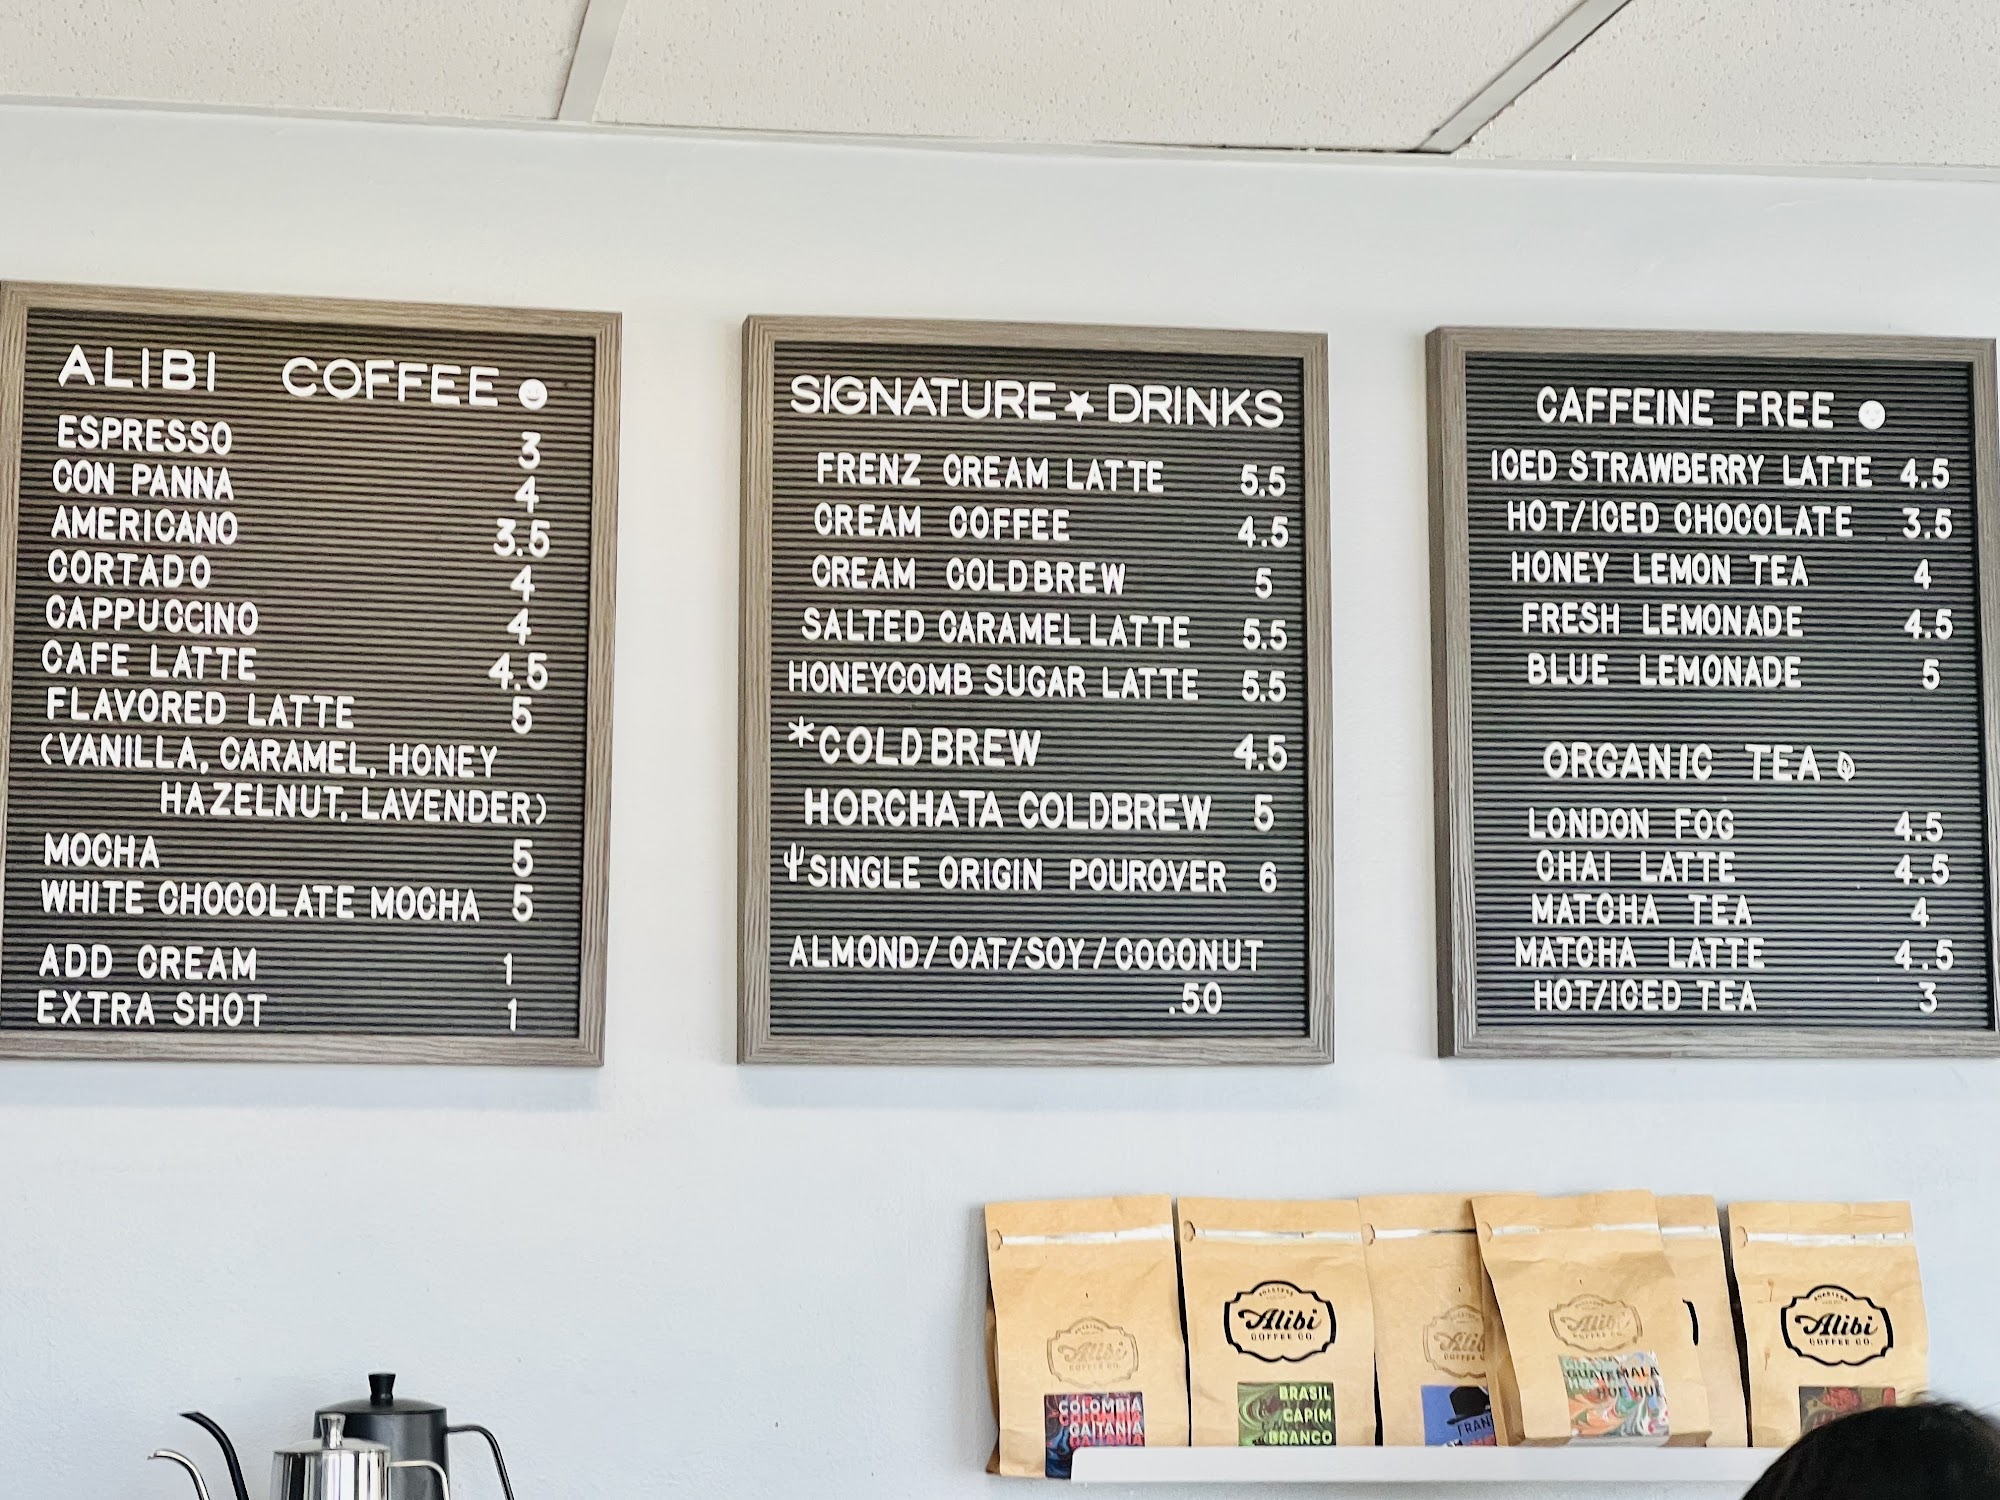 ALIBI COFFEE
ESPRESSO 3
CON PANNA 4
AMERICANO 3.5
CORTADO 4
CAPPUCCINO 4
CAFE LATTE 4.5
FLAVORED LATTE 5
(VANILLA, CARAMEL, HONEY
HAZELNUT, LAVENDER)
MOCHA 5
WHITE CHOCOLATE MOCHA 5
ADD CREAM 1
EXTRA SHOT 1
SIGNATURE★DRINKS
FRENZ CREAM LATTE 5.5
CREAM COFFEE 4.5
CREAM COLDBREW 5
SALTED CARAMEL LATTE 5.5
HONEYCOMB SUGAR LATTE 5.5
*COLDBREW 4.5
HORCHATA COLDBREW 5
SINGLE ORIGIN POUROVER 6
ALMOND/OAT/SOY/COCONUT
.50
CAFFEINE FREE
ICED STRAWBERRY LATTE 4.5
HOT/ICED CHOCOLATE 3.5
HONEY LEMON TEA 4
FRESH LEMONADE 4.5
BLUE LEMONADE 5
ORGANIC TEA
LONDON FOG 4.5
CHAI LATTE 4.5
MATCHA TEA 4
MATCHA LATTE 4.5
HOT/ICED TEA 3
Alibi
COFFEE CO.
COLOMBIA
GAITANIA
ROASTERS
Alibi
COFFEE CO.
BRASIL
CAPIM
BRANCO
Alibi
COFFEE CO.
GUATEMALA
ROASTERS
Alibi
COFFEE CO.